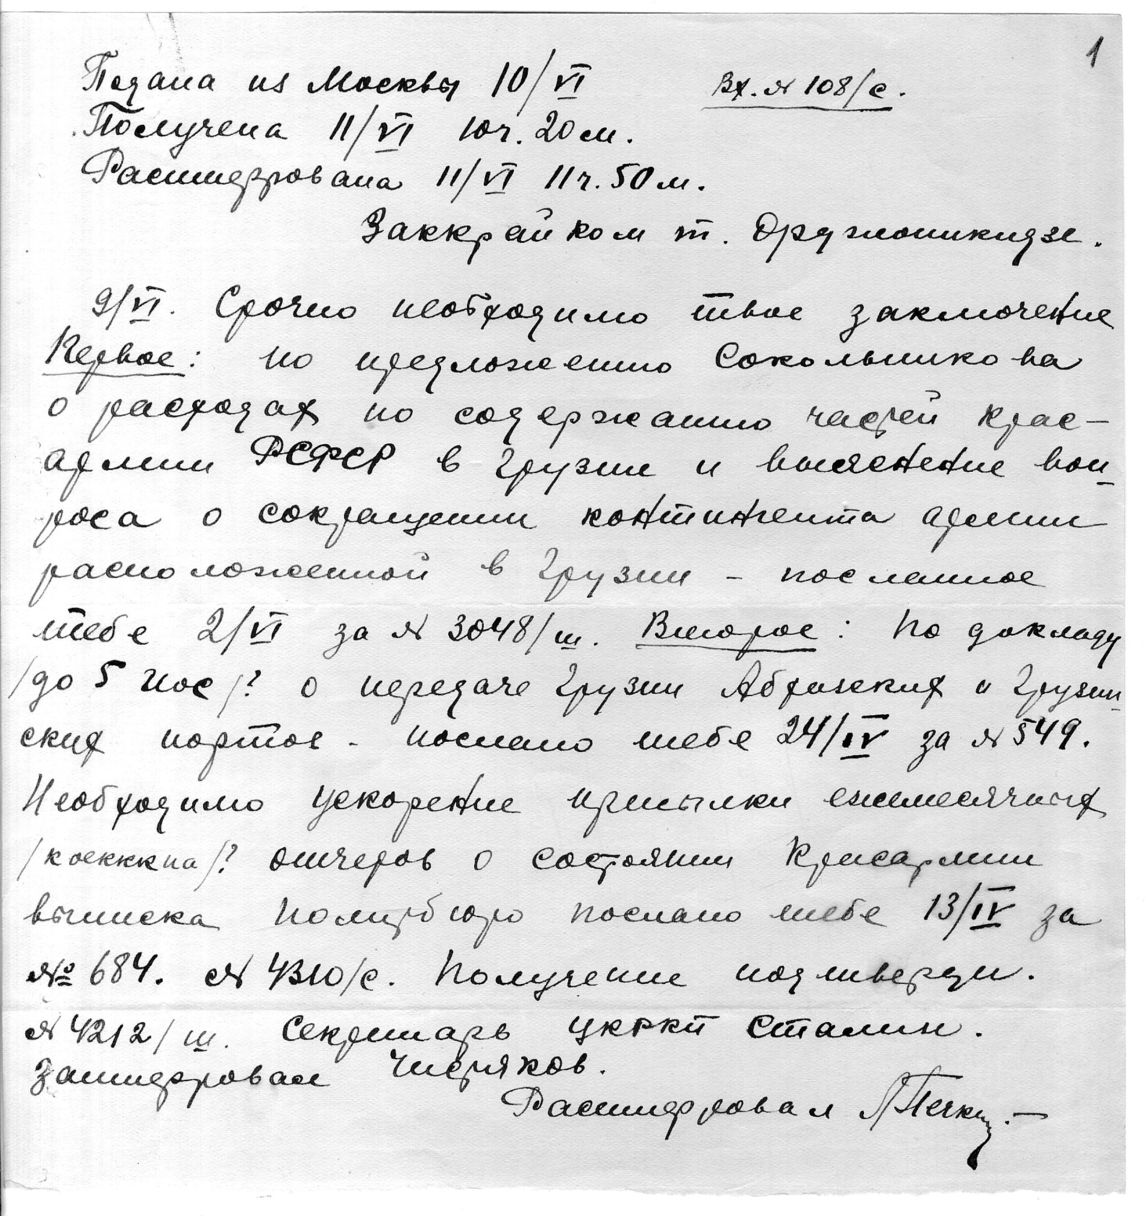 1
Подана из Москвы 10/VI Вх. № 108/с.
Получена 11/VI 10ч. 20м.
Расшифрована 11/VI 11ч. 50м.
Заккрайком т. Орджоникидзе.
9/VI. Срочно необходимо твое заключение
Первое: по предложению Сокольникова
о расходах по содержанию частей крас-
армии РСФСР в Грузии и выяснение воп-
роса о сокращении контингента армии
расположенной в Грузии - посланное
тебе 2/VI за № 3048/ш. Второе: По докладу
/до 5 /? о передаче Грузии Абхазских и Грузин-
ских портов - послано тебе 24/IV за № 549.
Необходимо ускорение присылки ежемесячных
/? отчетов о состоянии Красармии
выписка Политбюро послано тебе 13/IV за
№ 684. № 4310/с. Получение подтверди.
№ 4212/ш. Секретарь ЦКРКП Сталин.
Зашифровал Чистяков.
Расшифровал